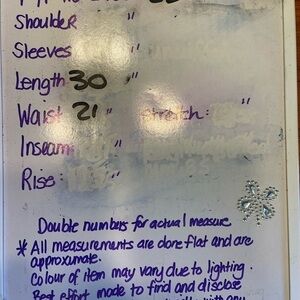 Shoulder "
Sleeves "
Length 30 "
Waist 21 " stretch: "
Inseam: "
Rise: "
Double numbers for actual measure
* All measurements are done flat and are
approximate.
Colour of item may vary due to lighting.
Best effort made to find and disclose